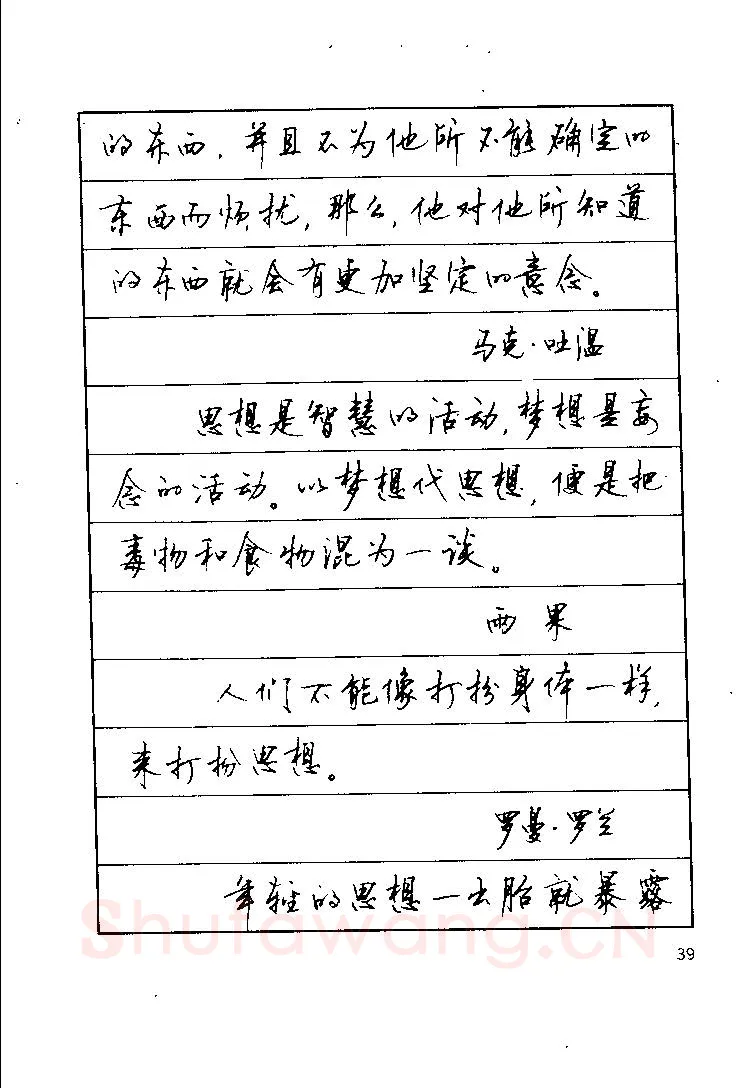 的东西，并且不为他所不能确定的
东西而烦扰，那么，他对他所知道
的东西就会有更加坚定的意念。
马克·吐温
思想是智慧的活动，梦想是妄
念的活动。以梦想代思想，便是把
毒物和食物混为一谈。
雨果
人们不能像打扮身体一样，
来打扮思想。
罗曼·罗兰
年轻的思想一出胎就暴露
Shufawang.CN
39